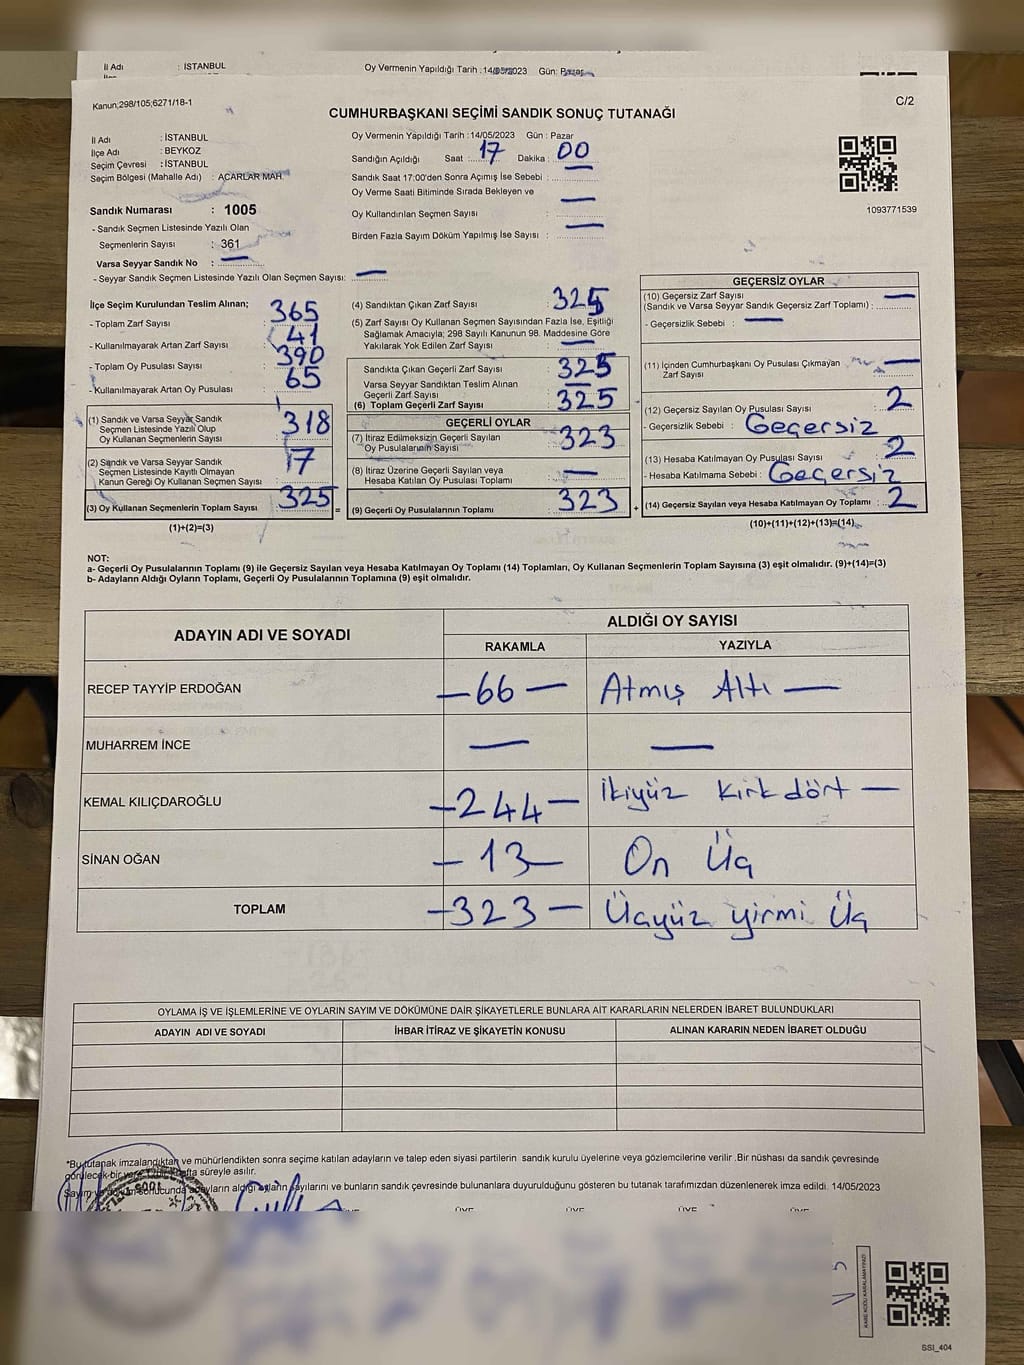 İl Adı : İSTANBUL
Oy Vermenin Yapıldığı Tarih :14/05/2023 Gün: Pazar
Kanun,298/105;6271/18-1
C/2
CUMHURBAŞKANI SEÇİMİ SANDIK SONUÇ TUTANAĞI
İl Adı : İSTANBUL
İlçe Adı : BEYKOZ
Seçim Çevresi : İSTANBUL
Seçim Bölgesi (Mahalle Adı) : ACARLAR MAH.
Sandık Numarası : 1005
- Sandık Seçmen Listesinde Yazılı Olan
Seçmenlerin Sayısı : 361
Varsa Seyyar Sandık No : —
- Seyyar Sandık Seçmen Listesinde Yazılı Olan Seçmen Sayısı: —
Oy Vermenin Yapıldığı Tarih :14/05/2023 Gün : Pazar
Sandığın Açıldığı Saat : 17 Dakika : 00
Sandık Saat 17:00'den Sonra Açımış İse Sebebi : —
Oy Verme Saati Bitiminde Sırada Bekleyen ve
Oy Kullandırılan Seçmen Sayısı : —
Birden Fazla Sayım Döküm Yapılmış İse Sayısı : —
1093771539
İlçe Seçim Kurulundan Teslim Alınan;
- Toplam Zarf Sayısı : 365
- Kullanılmayarak Artan Zarf Sayısı : 41
- Toplam Oy Pusulası Sayısı : 390
- Kullanılmayarak Artan Oy Pusulası : 65
(1) Sandık ve Varsa Seyyar Sandık
Seçmen Listesinde Yazılı Olup
Oy Kullanan Seçmenlerin Sayısı : 318
(2) Sandık ve Varsa Seyyar Sandık
Seçmen Listesinde Kayıtlı Olmayan
Kanun Gereği Oy Kullanan Seçmen Sayısı : 7
(3) Oy Kullanan Seçmenlerin Toplam Sayısı : 325 =
(1)+(2)=(3)
(4) Sandıktan Çıkan Zarf Sayısı : 325
(5) Zarf Sayısı Oy Kullanan Seçmen Sayısından Fazla İse, Eşitliği
Sağlamak Amacıyla; 298 Sayılı Kanunun 98. Maddesine Göre
Yakılarak Yok Edilen Zarf Sayısı : —
Sandıkta Çıkan Geçerli Zarf Sayısı : 325
Varsa Seyyar Sandıktan Teslim Alınan
Geçerli Zarf Sayısı : —
(6) Toplam Geçerli Zarf Sayısı : 325
GEÇERLİ OYLAR
(7) İtiraz Edilmeksizin Geçerli Sayılan
Oy Pusulalarının Sayısı : 323
(8) İtiraz Üzerine Geçerli Sayılan veya
Hesaba Katılan Oy Pusulası Toplamı : —
(9) Geçerli Oy Pusulalarının Toplamı : 323 +
GEÇERSİZ OYLAR
(10) Geçersiz Zarf Sayısı
(Sandık ve Varsa Seyyar Sandık Geçersiz Zarf Toplamı) : —
- Geçersizlik Sebebi : —
(11) İçinden Cumhurbaşkanı Oy Pusulası Çıkmayan
Zarf Sayısı : —
(12) Geçersiz Sayılan Oy Pusulası Sayısı : 2
- Geçersizlik Sebebi : Geçersiz
(13) Hesaba Katılmayan Oy Pusulası Sayısı : 2
- Hesaba Katılmama Sebebi : Geçersiz
(14) Geçersiz Sayılan veya Hesaba Katılmayan Oy Toplamı : 2
(10)+(11)+(12)+(13)=(14)
NOT:
a- Geçerli Oy Pusulalarının Toplamı (9) ile Geçersiz Sayılan veya Hesaba Katılmayan Oy Toplamı (14) Toplamları, Oy Kullanan Seçmenlerin Toplam Sayısına (3) eşit olmalıdır. (9)+(14)=(3)
b- Adayların Aldığı Oyların Toplamı, Geçerli Oy Pusulalarının Toplamına (9) eşit olmalıdır.
ADAYIN ADI VE SOYADI
ALDIĞI OY SAYISI
RAKAMLA YAZIYLA
RECEP TAYYİP ERDOĞAN —66— Atmış Altı —
MUHARREM İNCE — —
KEMAL KILIÇDAROĞLU —244— İkiyüz kırk dört —
SİNAN OĞAN —13— On Üç
TOPLAM —323— Üçyüz yirmi Üç
OYLAMA İŞ VE İŞLEMLERİNE VE OYLARIN SAYIM VE DÖKÜMÜNE DAİR ŞİKAYETLERLE BUNLARA AİT KARARLARIN NELERDEN İBARET BULUNDUKLARI
ADAYIN ADI VE SOYADI İHBAR İTİRAZ VE ŞİKAYETİN KONUSU ALINAN KARARIN NEDEN İBARET OLDUĞU
*Bu tutanak imzalandıktan ve mühürlendikten sonra seçime katılan adayların ve talep eden siyasi partilerin sandık kurulu üyelerine veya gözlemcilerine verilir .Bir nüshası da sandık çevresinde
görülecek bir yere bir hafta süreyle asılır.
Sayım ve döküm sonucunda adayların aldığı oyların sayılarını ve bunların sandık çevresinde bulunanlara duyurulduğunu gösteren bu tutanak tarafımızdan düzenlenerek imza edildi. 14/05/2023
ÜYE ÜYE ÜYE ÜYE ÜYE
KARE KODU KARALAMAYINIZ!
SSI_404